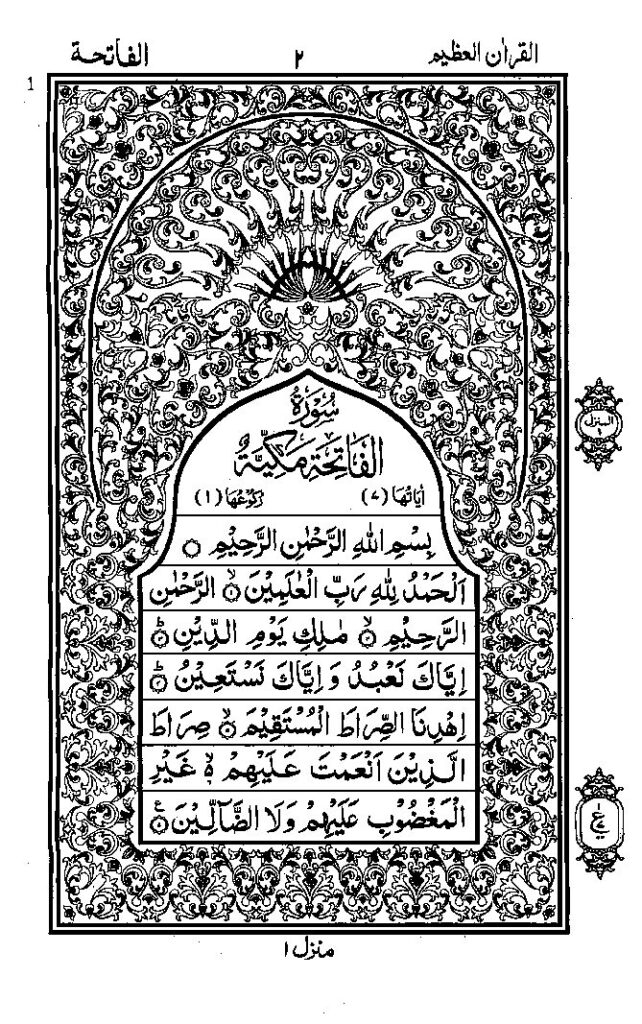 القراٰن العظیم ٢ الفاتحة
1
سُوْرَةُ
الْفَاتِحَةِ مَكِّيَّةٌ
اٰیَاتُهَا (٧) رُكُوْعُهَا (١)
بِسْمِ اللّٰهِ الرَّحْمٰنِ الرَّحِیْمِ ۝
اَلْحَمْدُ لِلّٰهِ رَبِّ الْعٰلَمِیْنَ ۝١ۙ الرَّحْمٰنِ
الرَّحِیْمِ ۝٢ۙ مٰلِكِ یَوْمِ الدِّیْنِ ۝٣ؕ
اِیَّاكَ نَعْبُدُ وَ اِیَّاكَ نَسْتَعِیْنُ ۝٤ؕ
اِهْدِنَا الصِّرَاطَ الْمُسْتَقِیْمَ ۝٥ۙ صِرَاطَ
الَّذِیْنَ اَنْعَمْتَ عَلَیْهِمْ ۝٦ۙ غَیْرِ
الْمَغْضُوْبِ عَلَیْهِمْ وَلَا الضَّآلِّیْنَ ۝٧
المنزل ١
منزل ١